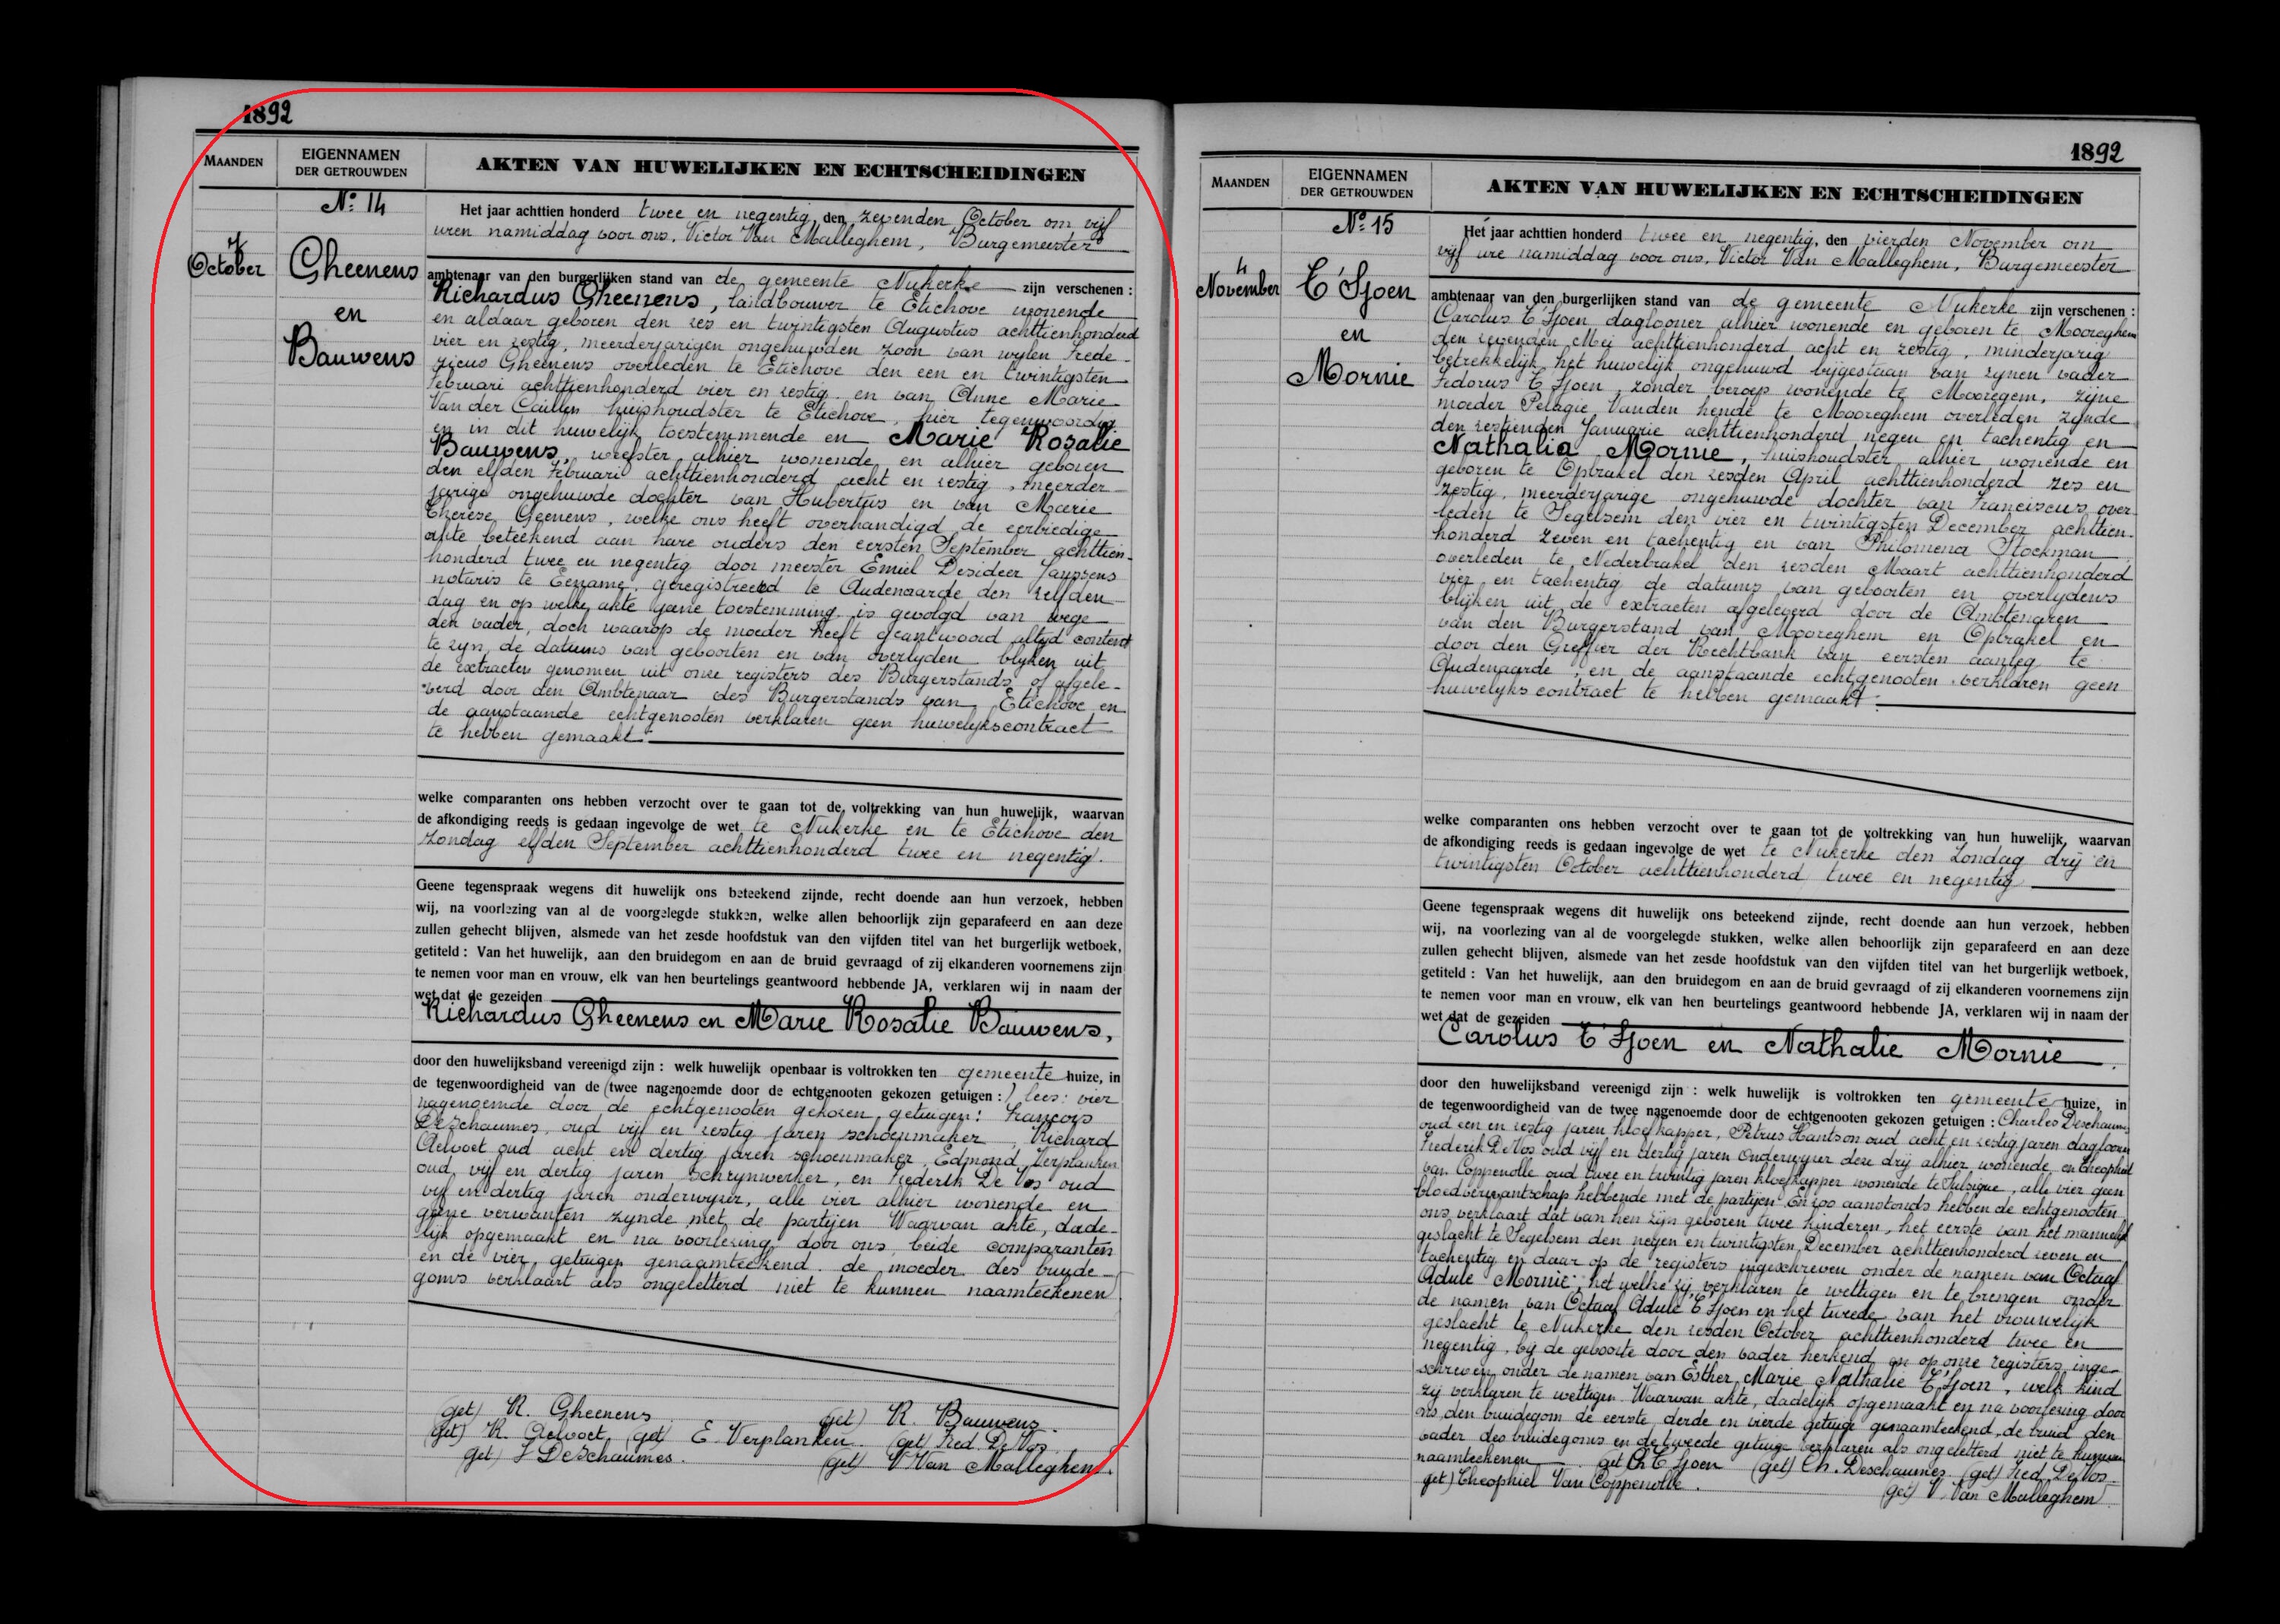 1892
MAANDEN
EIGENNAMEN
DER GETROUWDEN
AKTEN VAN HUWELIJKEN EN ECHTSCHEIDINGEN
No 14
7
October
Gheenens
en
Bauwens
Het jaar achttien honderd twee en negentig, den zevenden October om vijf
uren namiddag voor ons, Victor Van Malleghem, Burgemeester
ambtenaar van den burgerlijken stand van de gemeente Nukerke zijn verschenen :
Richardus Gheenens, landbouwer te Etichove wonende
en aldaar geboren den zes en twintigsten Augustus achttienhonderd
vier en zestig, meerderjarigen ongehuwden zoon van wijlen Frede-
ricus Gheenens overleden te Etichove den een en twintigsten
Februari achttienhonderd vier en zestig en van Anne Marie
Van der huishoudster te Etichove, hier tegenwoordig
en in dit huwelijk toestemmende en Marie Rosalie
Bauwens, weefster alhier wonende en alhier geboren
den elfden Februari achttienhonderd acht en zestig, meerder-
jarige ongehuwde dochter van Hubertus en van Marie
Therese Geenens, welke ons heeft overhandigd de eerbiedige
akte beteekend aan hare ouders den eersten September achttien-
honderd twee en negentig door meester Emiel Desideer Janssens
notaris te Eename, geregistreerd te Audenaarde den zelfden
dag en op welke akte gene toestemming is gevolgd van wege
den vader, doch waarop de moeder heeft geantwoord altijd content
te zyn, de datums van geboorten en van overlyden blyken uit
de extracten genomen uit onze registers des Burgerstands of afgele-
verd door den Ambtenaar des Burgerstands van Etichove en
de aanstaande echtgenooten verklaren geen huwelijkscontract
te hebben gemaakt
welke comparanten ons hebben verzocht over te gaan tot de voltrekking van hun huwelijk, waarvan
de afkondiging reeds is gedaan ingevolge de wet te Nukerke en te Etichove den
Zondag elfden September achttienhonderd twee en negentig.
Geene tegenspraak wegens dit huwelijk ons beteekend zijnde, recht doende aan hun verzoek, hebben
wij, na voorlezing van al de voorgelegde stukken, welke allen behoorlijk zijn geparafeerd en aan deze
zullen gehecht blijven, alsmede van het zesde hoofdstuk van den vijfden titel van het burgerlijk wetboek,
getiteld : Van het huwelijk, aan den bruidegom en aan de bruid gevraagd of zij elkanderen voornemens zijn
te nemen voor man en vrouw, elk van hen beurtelings geantwoord hebbende JA, verklaren wij in naam der
wet dat de gezeiden
Richardus Gheenens en Marie Rosalie Bauwens,
door den huwelijksband vereenigd zijn : welk huwelijk openbaar is voltrokken ten gemeente huize, in
de tegenwoordigheid van de (twee nagenoemde door de echtgenooten gekozen getuigen :) lees: vier
nagenoemde door de echtgenooten gekozen getuigen: François
Deschaumes, oud vijf en zestig jaren schoenmaker, Richard
Aelvoet oud acht en dertig jaren schoenmaker, Edmond Verplanken
oud vijf en dertig jaren schrynwerker, en Frederik De Vos oud
vijf en dertig jaren onderwyzer, alle vier alhier wonende en
geene verwanten zynde met de partijen Waarvan akte, dade-
lijk opgemaakt en na voorlezing door ons, beide comparanten
en de vier getuigen genaamteekend. de moeder des bruide-
goms verklaart als ongeletterd niet te kunnen naamteekenen
(get) R. Gheenens (get) R. Bauwens
(get) R. Aelvoet (get) E. Verplanken. (get) Fred. De Vos
(get) F Deschaumes. (get) V. Van Malleghem.
1892
MAANDEN
EIGENNAMEN
DER GETROUWDEN
AKTEN VAN HUWELIJKEN EN ECHTSCHEIDINGEN
No 15
4
November
T'Sjoen
en
Mornie
Het jaar achttien honderd twee en negentig, den vierden November om
vijf ure namiddag voor ons, Victor Van Malleghem, Burgemeester
ambtenaar van den burgerlijken stand van de gemeente Nukerke zijn verschenen :
Carolus T'Sjoen daglooner alhier wonende en geboren te Mooreghem
den zevenden Mei achttienhonderd acht en zestig, minderjarig
betrekkelijk het huwelijk ongehuwd bijgestaan van zynen vader
Fedorus T'Sjoen, zonder beroep wonende te Mooregem, zijne
moeder Pelagie Vanden hende te Mooreghem overleden zynde
den zestienden Januarie achttienhonderd negen en tachentig en
Nathalia Mornie, huishoudster alhier wonende en
geboren te Opbrakel den zesden April achttienhonderd zes en
zestig, meerderjarige ongehuwde dochter van Franciscus over-
leden te Segelsem den vier en twintigsten December achttien-
honderd zeven en tachentig en van Philomena Stockman
overleden te Nederbrakel den zesden Maart achttienhonderd
vier en tachentig de datums van geboorten en overlydens
blijken uit de extracten afgeleverd door de Ambtenaren
van den Burgerstand van Mooreghem en Opbrakel en
door den Greffier der Rechtbank van eersten aanleg te
Audenaarde, en de aanstaande echtgenooten verklaren geen
huwelijkscontract te hebben gemaakt.
welke comparanten ons hebben verzocht over te gaan tot de voltrekking van hun huwelijk, waarvan
de afkondiging reeds is gedaan ingevolge de wet te Nukerke den Zondag drij en
twintigsten October achttienhonderd twee en negentig
Geene tegenspraak wegens dit huwelijk ons beteekend zijnde, recht doende aan hun verzoek, hebben
wij, na voorlezing van al de voorgelegde stukken, welke allen behoorlijk zijn geparafeerd en aan deze
zullen gehecht blijven, alsmede van het zesde hoofdstuk van den vijfden titel van het burgerlijk wetboek,
getiteld : Van het huwelijk, aan den bruidegom en aan de bruid gevraagd of zij elkanderen voornemens zijn
te nemen voor man en vrouw, elk van hen beurtelings geantwoord hebbende JA, verklaren wij in naam der
wet dat de gezeiden
Carolus T'Sjoen en Nathalie Mornie.
door den huwelijksband vereenigd zijn : welk huwelijk is voltrokken ten gemeente huize, in
de tegenwoordigheid van de twee nagenoemde door de echtgenooten gekozen getuigen : Charles Deschaumes
oud een en zestig jaren kloefkapper, Petrus Hantson oud acht en zestig jaren daglooner
Frederik De Vos oud vijf en dertig jaren Onderwyzer deze drij alhier wonende, en Theophiel
van Coppenolle oud twee en twintig jaren kloefkapper wonende te Sulsique, alle vier geen
bloedverwantschap hebbende met de partijen En zoo aanstonds hebben de echtgenooten
ons verklaart dat van hen zijn geboren twee kinderen, het eerste van het mannelijk
geslacht te Segelsem den negen en twintigsten December achttienhonderd zeven en
tachentig en daar op de registers ingeschreven onder de namen van Octaaf
Adule Mornie; het welke zij verklaren te wettigen en te brengen onder
de namen van Octaaf Adule T'Sjoen en het tweede van het vrouwelijk
geslacht te Nukerke den zesden October achttienhonderd twee en
negentig, bij de geboorte door den vader herkend en op onze registers inge-
schreven onder de namen van Esther Marie Nathalie T'Sjoen, welk kind
zij verklaren te wettigen. Waarvan akte, dadelijk opgemaakt en na voorlezing door
ons, den bruidegom de eerste, derde en vierde getuige genaamteekend, de bruid den
vader des bruidegoms en de tweede getuige verklaren als ongeletterd niet te kunnen
naamteekenen get Ch T'Sjoen (get) Ch. Deschaumes (get) Fred. De Vos
get) Theophiel Van Coppenolle. (get) V. Van Malleghem